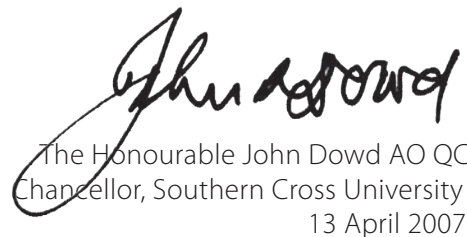 John Dowd
The Honourable John Dowd AO QC
Chancellor, Southern Cross University
13 April 2007